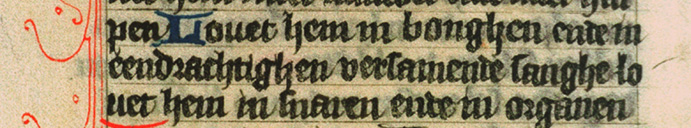 pen Louet hem in bonghen ende in
eendrachtighen versamende sanghe lo
uet hem in snaren ende in organen